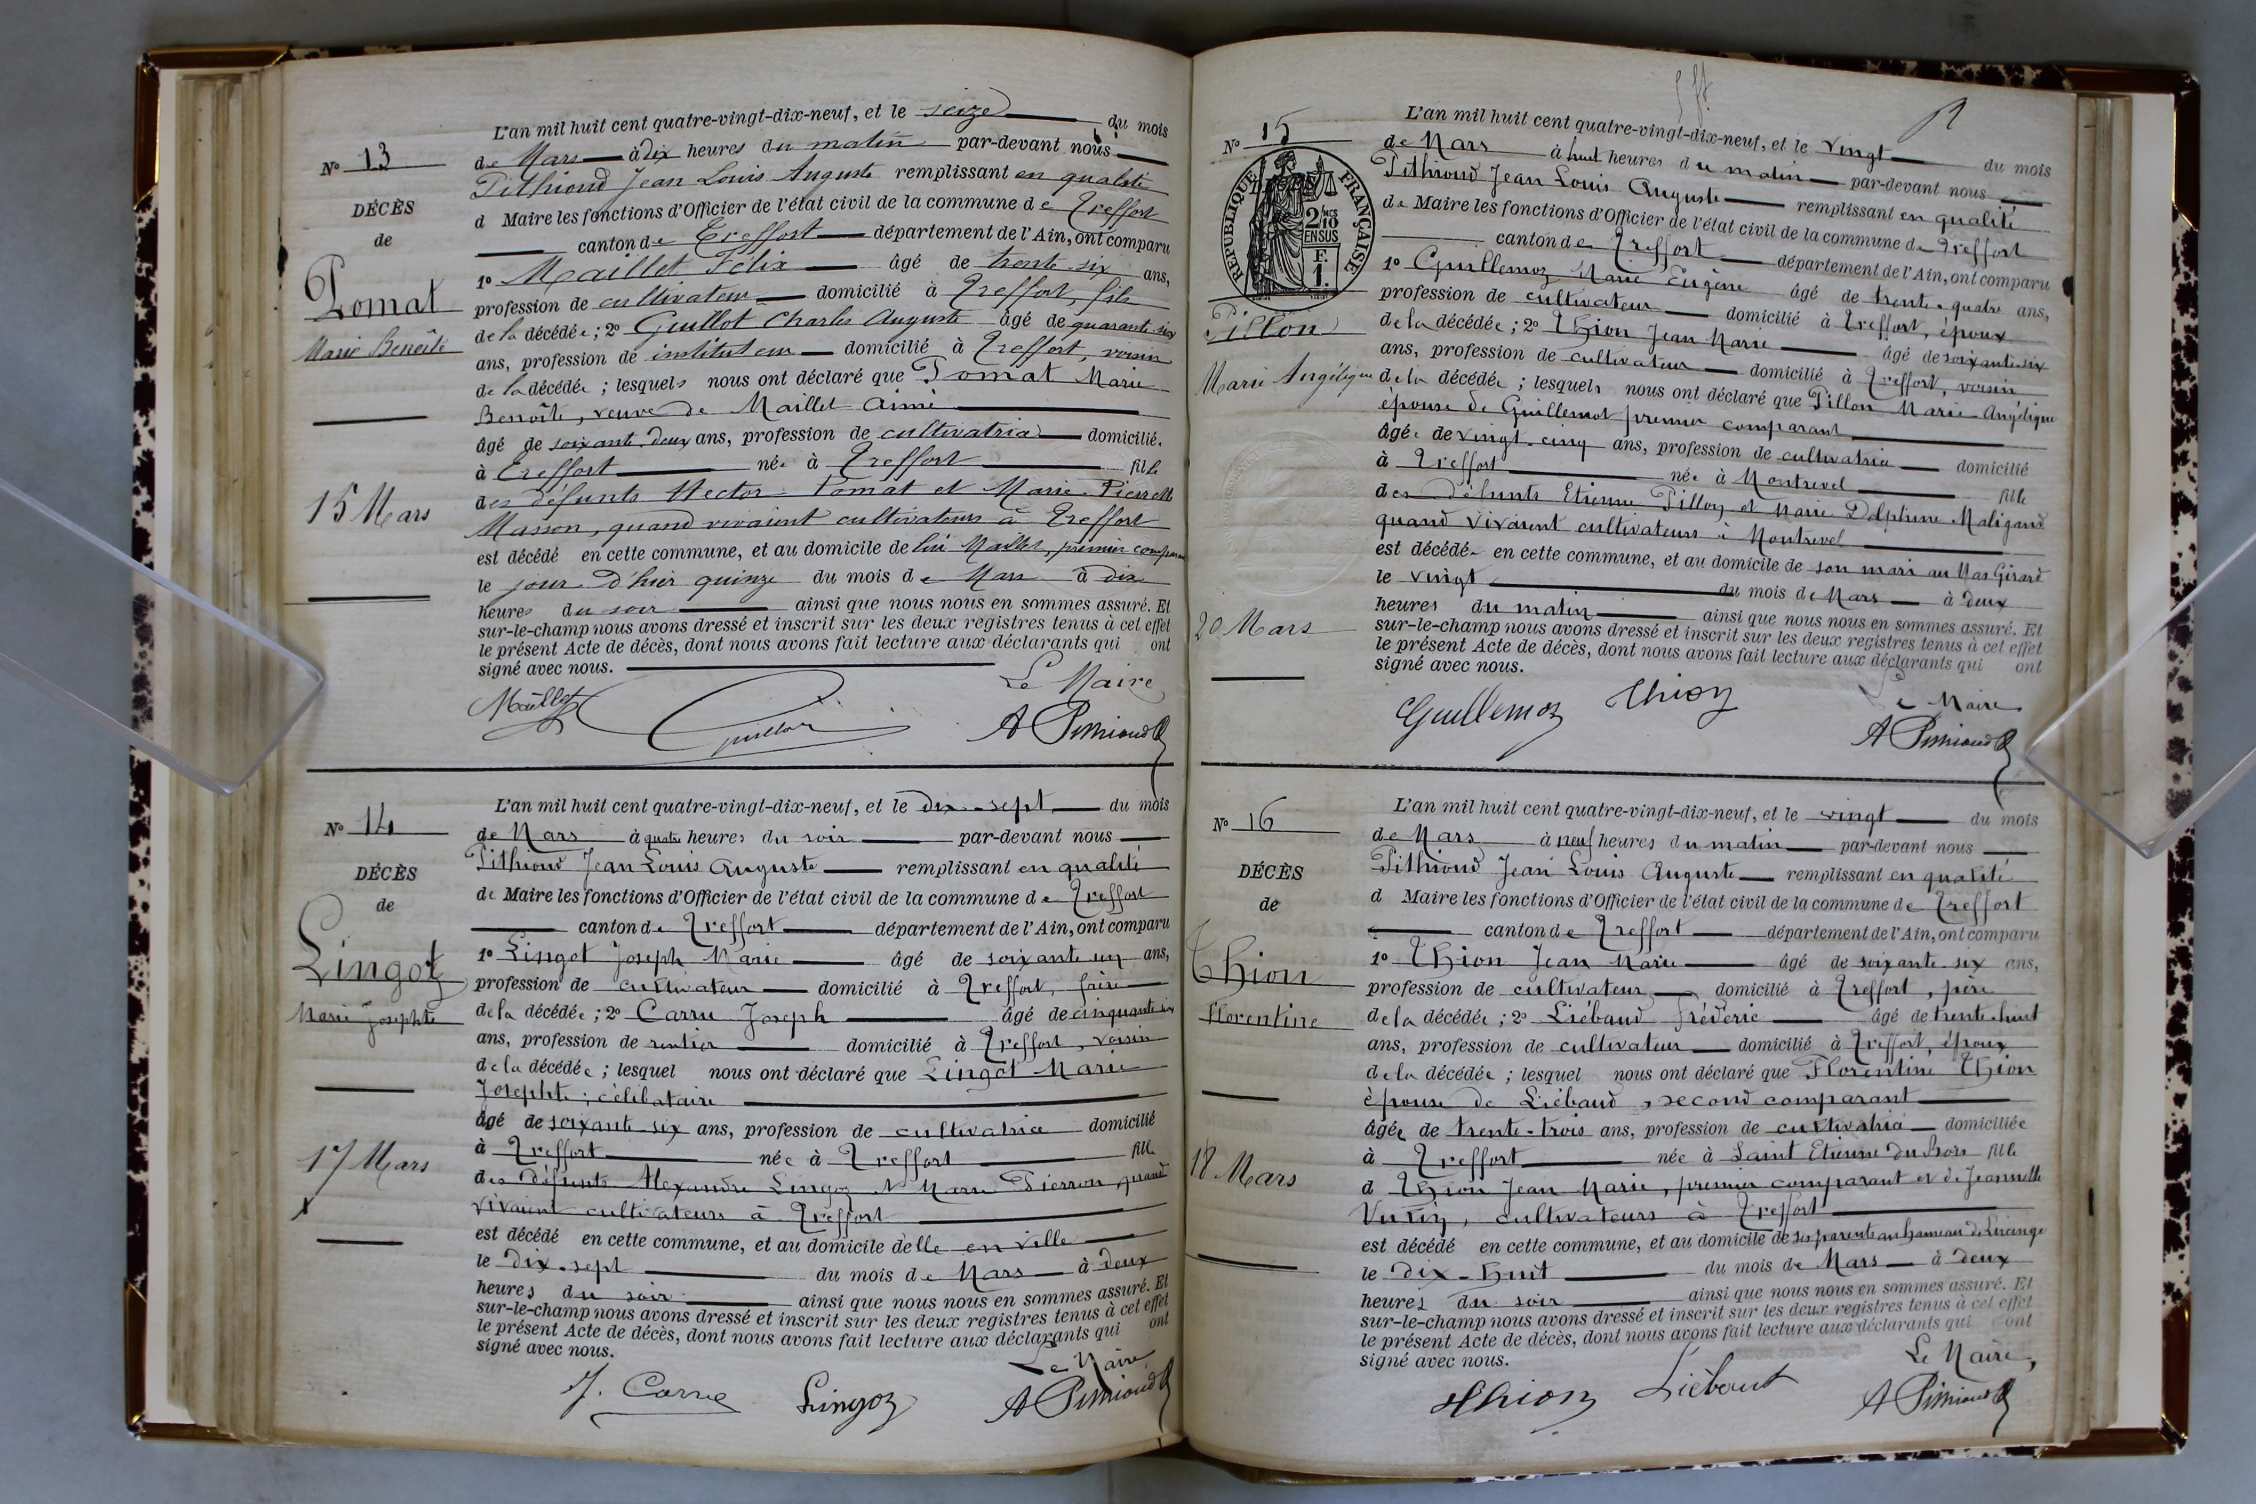 L'an mil huit cent quatre-vingt-dix-neuf, et le seize du mois
N° 13
de Mars à dix heures du matin par-devant nous
Pithioud Jean Louis Auguste remplissant en qualité
DÉCÈS
d Maire les fonctions d'Officier de l'état civil de la commune de Treffort
de
canton de Treffort département de l'Ain, ont comparu
Pomat
1° Maillet Félix âgé de trente six ans,
profession de cultivateur domicilié à Treffort, fils
Marie Benoite
de la décédée; 2° Guillot Charles Auguste âgé de quarante six
ans, profession de instituteur domicilié à Treffort, voisin
de la décédée; lesquels nous ont déclaré que Pomat Marie
Benoîte, veuve de Maillet Aimé
âgé de soixante deux ans, profession de cultivatrice domicilié.
à Treffort née à Treffort fille
15 Mars
des défunts Hector Pomat et Marie Pierrette
Masson, quand vivaient cultivateurs à Treffort
est décédé en cette commune, et au domicile de lui Maillet, premier comparant
le jour d'hier quinze du mois de Mars à dix
heures du soir ainsi que nous nous en sommes assuré. Et
sur-le-champ nous avons dressé et inscrit sur les deux registres tenus à cet effet
le présent Acte de décès, dont nous avons fait lecture aux déclarants qui ont
signé avec nous.
Le Maire
Maillet Guillot A Pithioud
L'an mil huit cent quatre-vingt-dix-neuf, et le dix-sept du mois
N° 14
de Mars à quatre heures du soir par-devant nous
Pithioud Jean Louis Auguste remplissant en qualité
DÉCÈS
de Maire les fonctions d'Officier de l'état civil de la commune de Treffort
de
canton de Treffort département de l'Ain, ont comparu
Lingot
1° Lingot Joseph Marie âgé de soixante un ans,
profession de cultivateur domicilié à Treffort, frère
Marie Josephte
de la décédée; 2° Carru Joseph âgé de cinquante six
ans, profession de rentier domicilié à Treffort, voisin
de la décédée; lesquel nous ont déclaré que Lingot Marie
Josephte; célibataire
âgé de soixante six ans, profession de cultivatrice domicilié
17 Mars
à Treffort née à Treffort fille
des défunts Alexandre Lingoz et Marie Pierron, quand
vivaient cultivateurs à Treffort
est décédé en cette commune, et au domicile d'elle en ville
le dix-sept du mois de Mars à deux
heures du soir ainsi que nous nous en sommes assuré. Et
sur-le-champ nous avons dressé et inscrit sur les deux registres tenus à cet effet
le présent Acte de décès, dont nous avons fait lecture aux déclarants qui ont
signé avec nous.
Le Maire
J. Carru Lingoz A Pithioud
L'an mil huit cent quatre-vingt-dix-neuf, et le vingt du mois
N° 15
de Mars à huit heures du matin par-devant nous
Pithioud Jean Louis Auguste remplissant en qualité
de Maire les fonctions d'Officier de l'état civil de la commune de Treffort
RÉPUBLIQUE FRANÇAISE
2/10 EN SUS
F. 1.
canton de Treffort département de l'Ain, ont comparu
1° Guillemoz Marie Eugène âgé de trente-quatre ans,
profession de cultivateur domicilié à Treffort, époux
Pillon
de la décédée; 2° Thion Jean Marie âgé de soixante six
ans, profession de cultivateur domicilié à Treffort, voisin
Marie Angélique
de la décédée; lesquels nous ont déclaré que Pillon Marie Angélique
épouse de Guillemot premier comparant
âgée de vingt-cinq ans, profession de cultivatrice domicilié
à Treffort née à Montrevel fille
des défunts Etienne Pillon et Marie Delphine Maligand
quand vivaient cultivateurs à Montrevel
est décédé en cette commune, et au domicile de son mari au Mas Girard
le vingt du mois de Mars à deux
20 Mars
heures du matin ainsi que nous nous en sommes assuré. Et
sur-le-champ nous avons dressé et inscrit sur les deux registres tenus à cet effet
le présent Acte de décès, dont nous avons fait lecture aux déclarants qui ont
signé avec nous.
Le Maire
Guillemoz Thion A Pithioud
L'an mil huit cent quatre-vingt-dix-neuf, et le vingt du mois
N° 16
de Mars à neuf heures du matin par-devant nous
Pithioud Jean Louis Auguste remplissant en qualité
DÉCÈS
d Maire les fonctions d'Officier de l'état civil de la commune de Treffort
de
canton de Treffort département de l'Ain, ont comparu
Thion
1° Thion Jean Marie âgé de soixante six ans,
profession de cultivateur domicilié à Treffort, père
Florentine
de la décédée; 2° Liébaud Fréderic âgé de trente-huit
ans, profession de cultivateur domicilié à Treffort, époux
de la décédée; lesquel nous ont déclaré que Florentine Thion
épouse de Liébaud, second comparant
âgée de trente-trois ans, profession de cultivatrice domiciliée
18 Mars
à Treffort née à Saint Etienne du Bois fille
d Thion Jean Marie, premier comparant et de Jeannette
cultivateurs à Treffort
est décédé en cette commune, et au domicile de ses parents au hameau de
le dix-huit du mois de Mars à deux
heures du soir ainsi que nous nous en sommes assuré. Et
sur-le-champ nous avons dressé et inscrit sur les deux registres tenus à cet effet
le présent Acte de décès, dont nous avons fait lecture aux déclarants qui ont
signé avec nous.
Le Maire,
Thion Liébaut A Pithioud